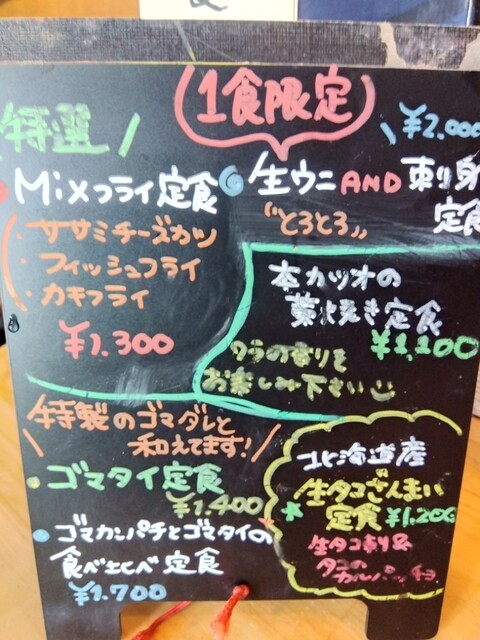 1食限定
特選
Mixフライ定食
・ササミチーズカツ
・フィッシュフライ
・カキフライ
¥1.300
¥2.000
生ウニAND刺身
定食
"とろとろ"
本カツオの
藁焼き定食
¥1.100
ワラの香りを
お楽しみ下さい
特製のゴマダレと
和えてます!
ゴマタイ定食
¥1.400
ゴマカンパチとゴマタイの
食べ比べ定食
¥1.700
北海道産
生タコざんまい
定食¥1.200
生タコ刺り&
タコの
カルパッチョ